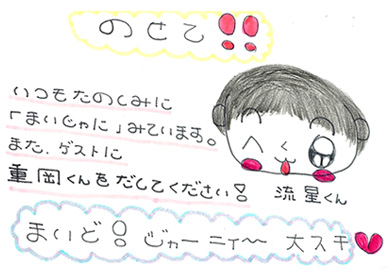 のせて!!
いつもたのしみに
「まいじゃに」みています。
また、ゲストに
重岡くんをだしてください!
流星くん
まいど!じゃーニィ〜 大スキ